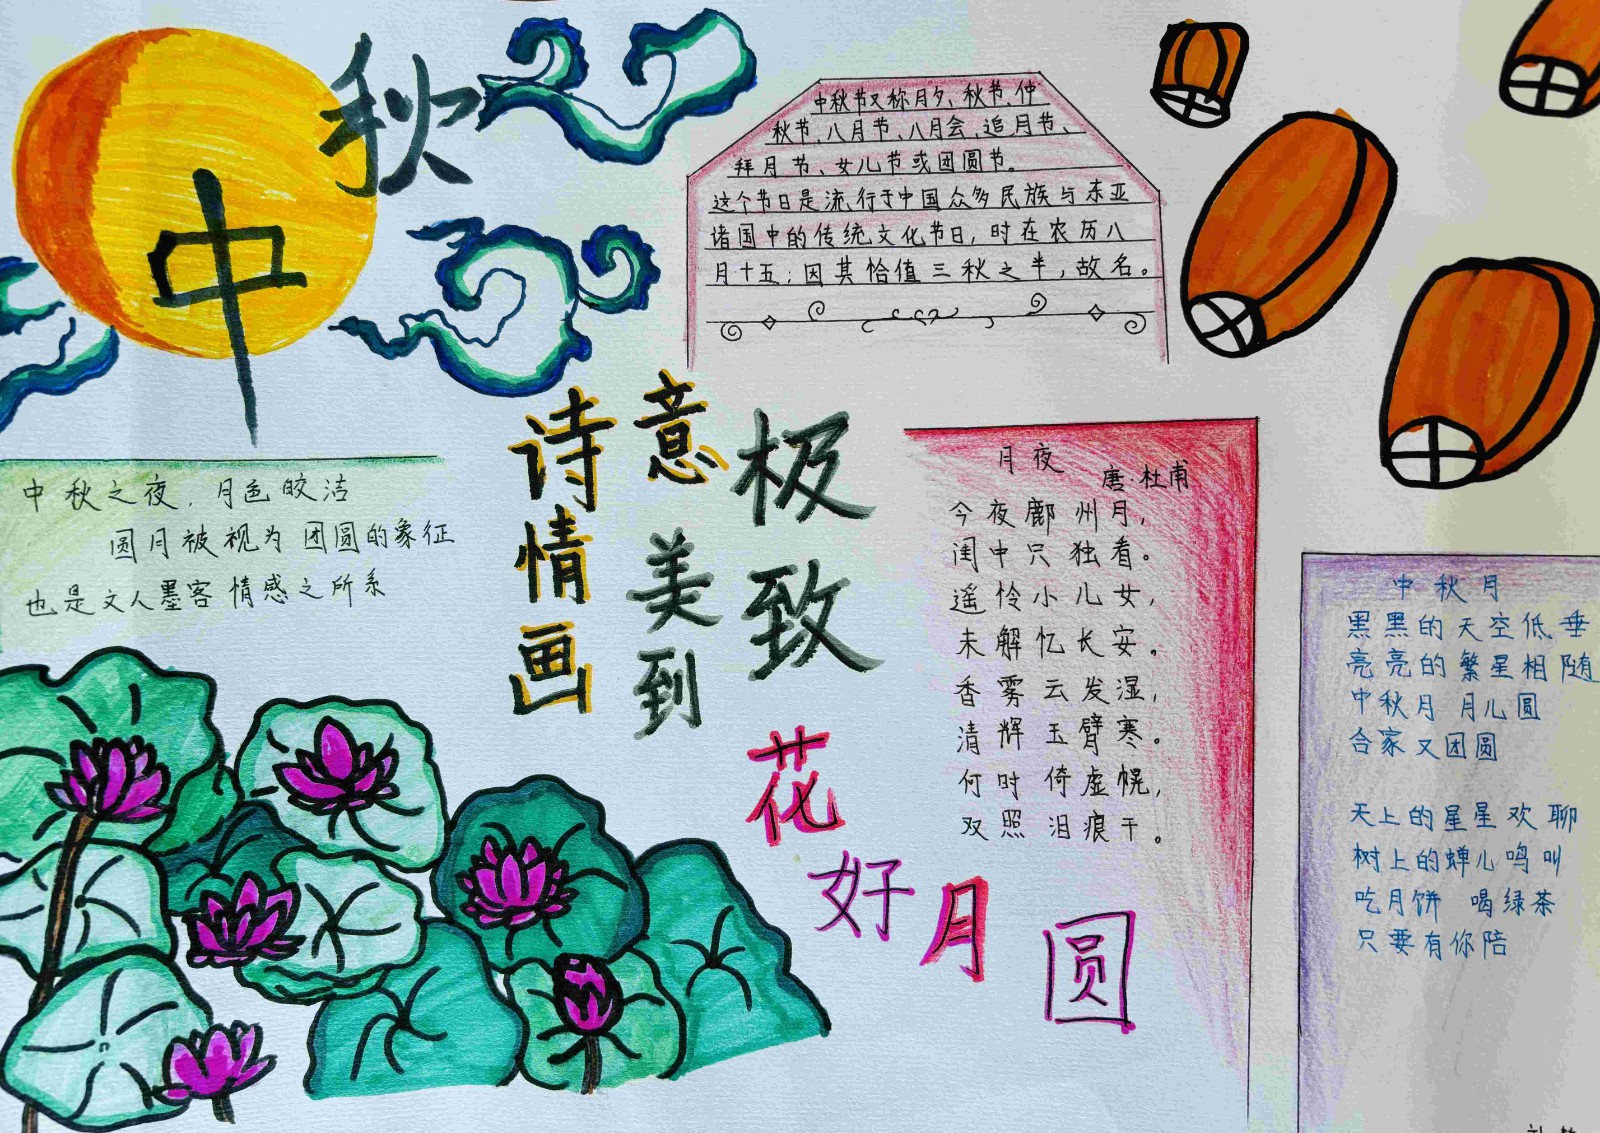 中秋
中秋节又称月夕、秋节、仲
秋节、八月节、八月会、追月节、
拜月节、女儿节或团圆节。
这个节日是流行于中国众多民族与东亚
诸国中的传统文化节日,时在农历八
月十五;因其恰值三秋之半,故名。
中秋之夜,月色皎洁
圆月被视为团圆的象征
也是文人墨客情感之所系
诗情画
意
美到
极致
花好月圆
月夜
唐·杜甫
今夜鄜州月,
闺中只独看。
遥怜小儿女,
未解忆长安。
香雾云发湿,
清辉玉臂寒。
何时倚虚幌,
双照泪痕干。
中秋月
黑黑的天空低垂
亮亮的繁星相随
中秋月 月儿圆
合家又团圆
天上的星星欢聊
树上的蝉儿鸣叫
吃月饼 喝绿茶
只要有你陪